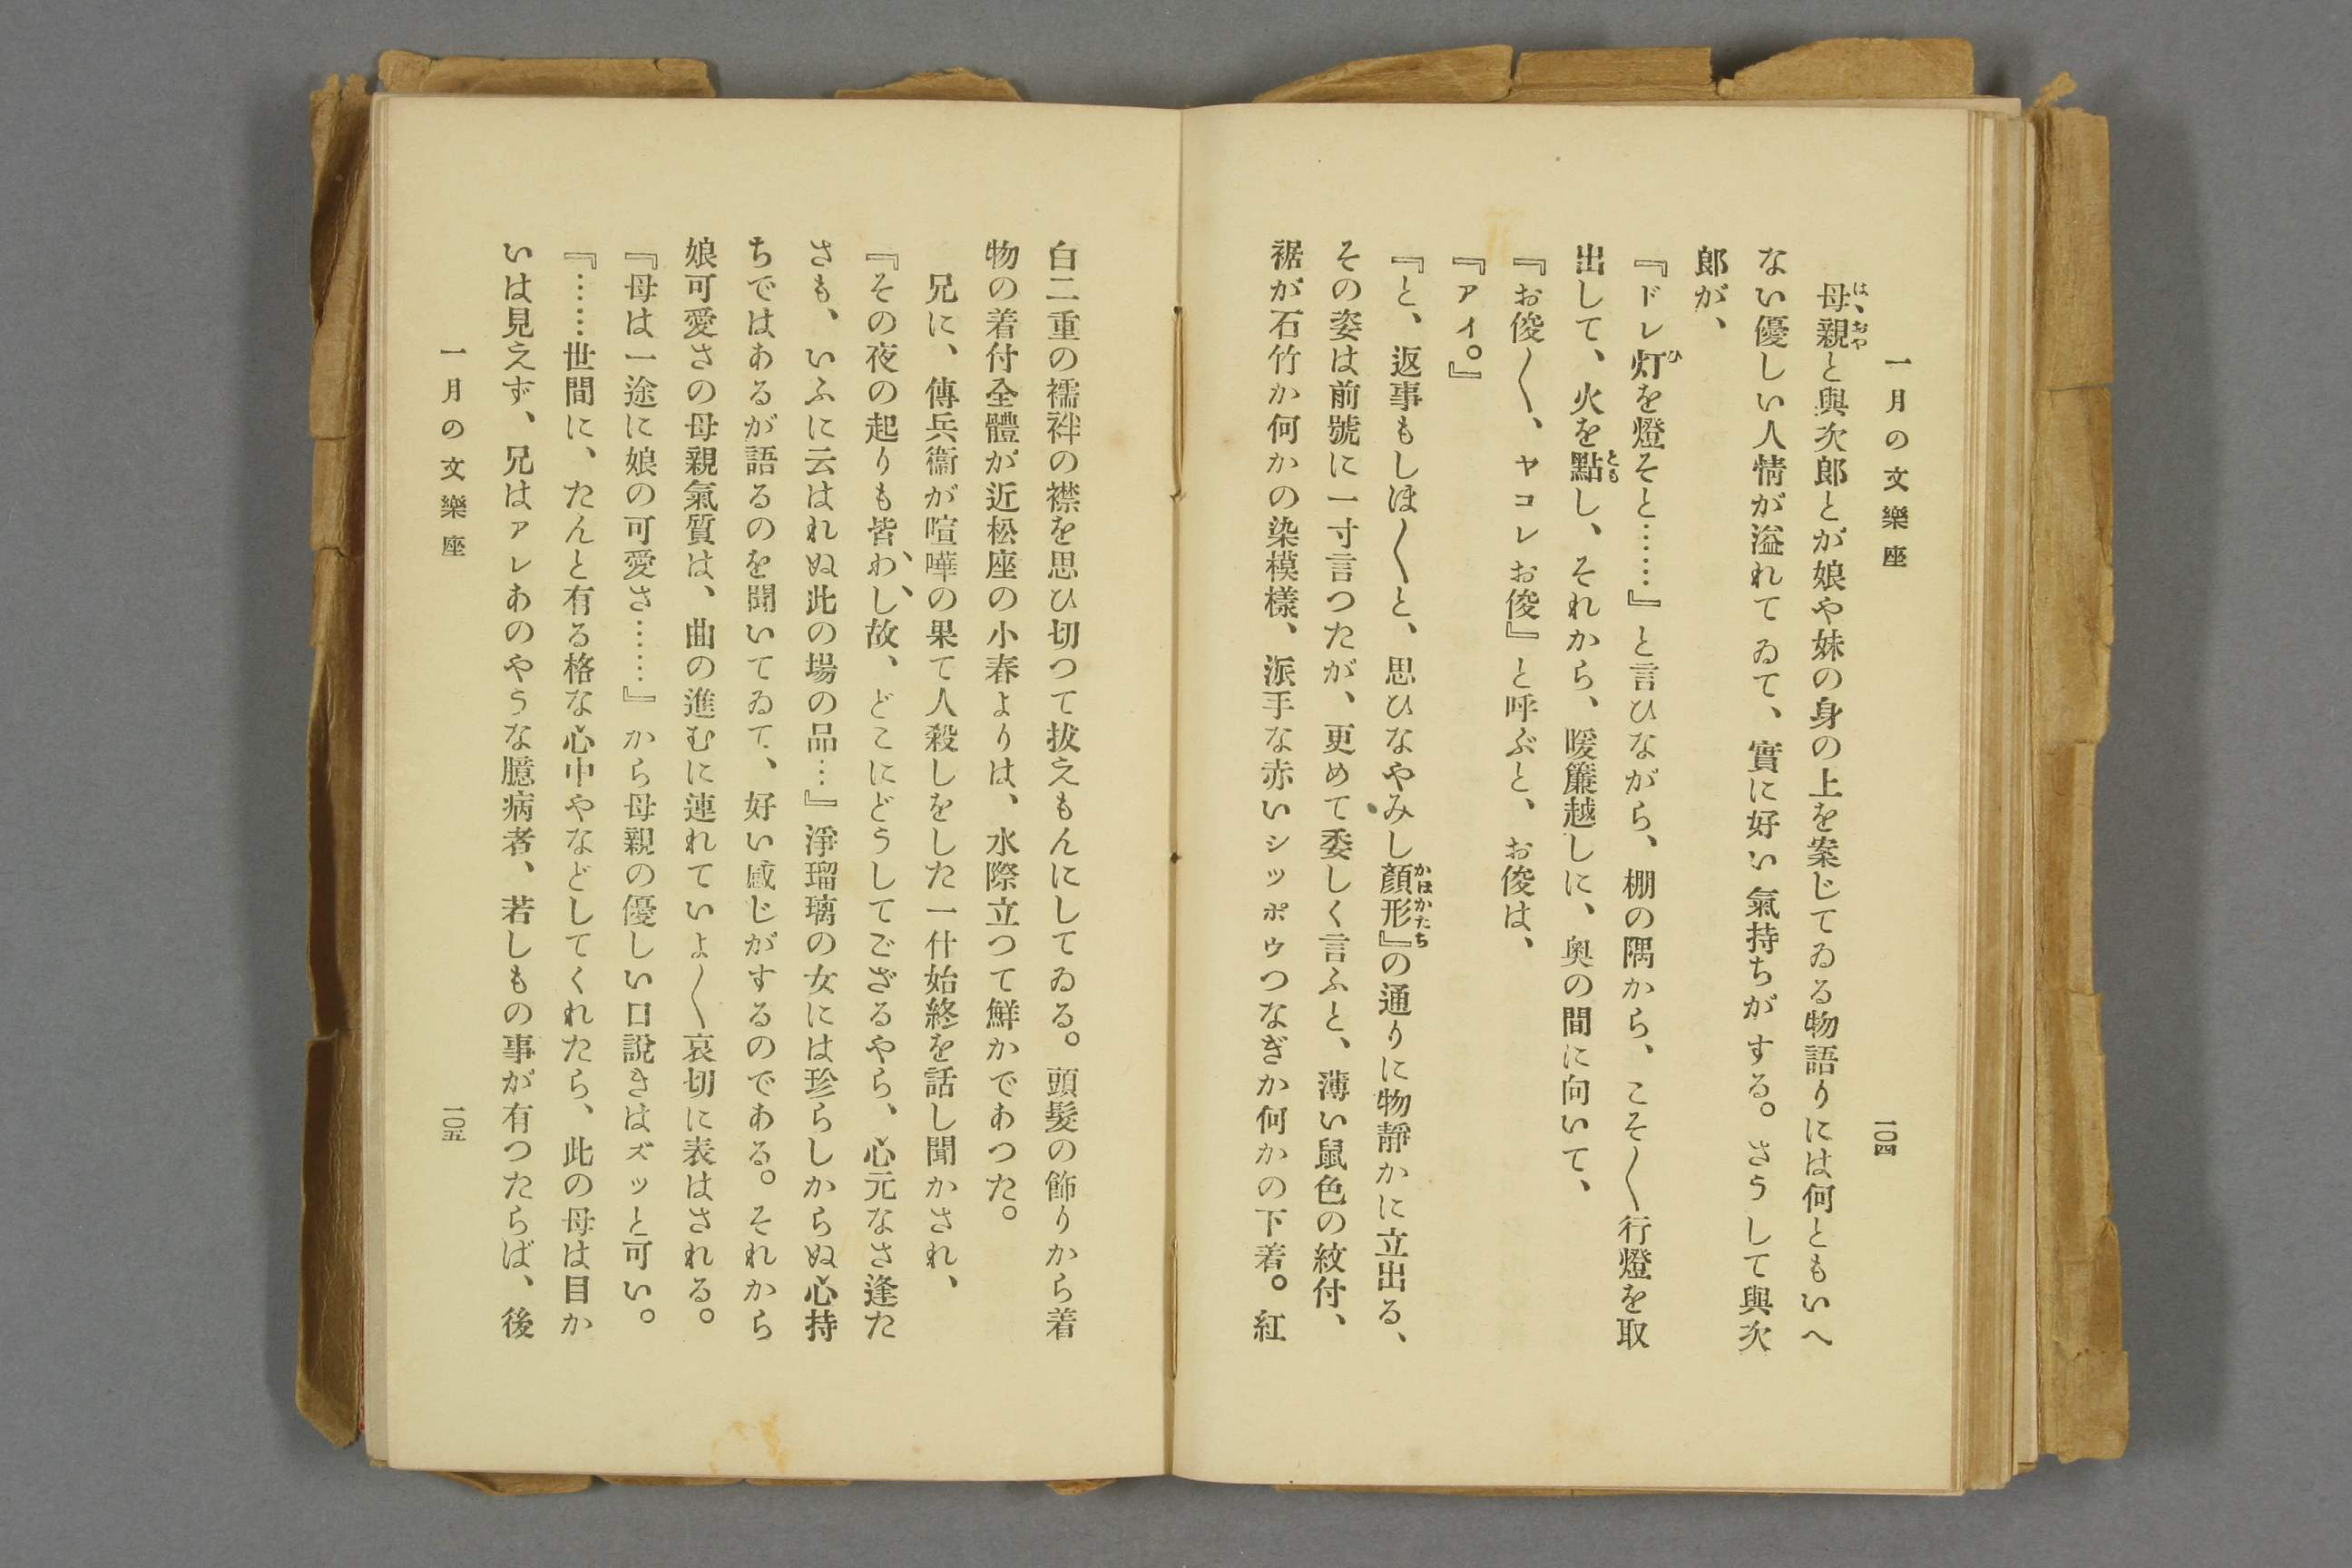 一月の文樂座
一〇四
母親と與次郎とが娘や妹の身の上を案じてゐる物語りには何ともいへ
ない優しい人情が溢れてゐて、實に好い氣持ちがする。さうして與次
郎が、
『ドレ灯を燈そと……』と言ひながら、棚の隅から、こそ〱行燈を取
出して、火を點し、それから、暖簾越しに、奥の間に向いて、
『お俊〱、ヤコレお俊』と呼ぶと、お俊は、
『アイ。』
『と、返事もしほ〱と、思ひなやみし顏形』の通りに物靜かに立出る、
その姿は前號に一寸言つたが、更めて委しく言ふと、薄い鼠色の紋付、
裾が石竹か何かの染模様、派手な赤いシッポウつなぎか何かの下着。紅
白二重の襦袢の襟を思ひ切つて拔えもんにしてゐる。頭髮の飾りから着
物の着付全體が近松座の小春よりは、水際立つて鮮かであつた。
兄に、傳兵衞が喧嘩の果て人殺しをした一什始終を話し聞かされ、
『その夜の起りも皆わし故、どこにどうしてござるやら、心元なさ逢た
さも、いふに云はれぬ此の場の品…』淨瑠璃の女には珍らしからぬ心持
ちではあるが語るのを聞いてゐて、好い感じがするのである。それから
娘可愛さの母親氣質は、曲の進むに連れていよ〱哀切に表はされる。
『母は一途に娘の可愛さ……』から母親の優しい口説きはズッと可い。
『……世間に、たんと有る格な心中やなどしてくれたら、此の母は目か
いは見えず、兄はァレあのやうな臆病者、若しもの事が有つたらば、後
一月の文樂座
一〇五